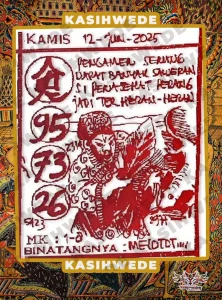 KASIHWEDE
KAMIS 12-JUN-2025
PENGAMEN SENANG
DAPAT BANYAK SAWERAN
SI PENJEPRET PERANG
JADI TER HERAN-HERAN
95
73
26
MK: 1-8
BINATANGNYA: MELDIDI....
KASIHWEDE